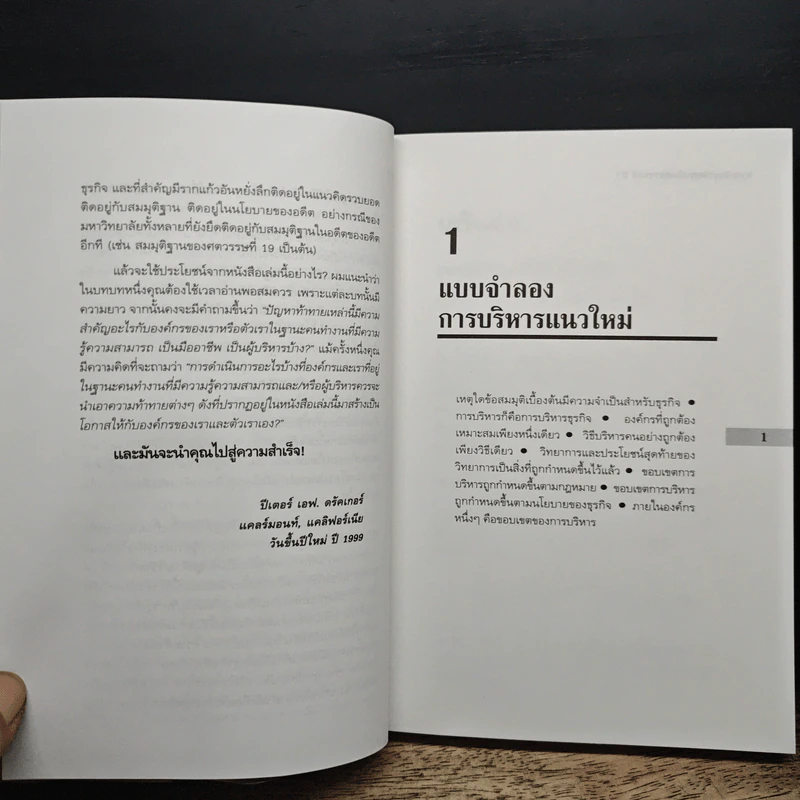 ธุรกิจ และที่สำคัญมีรากแก้วอันหยั่งลึกติดอยู่ในแนวคิดรวบยอด
ติดอยู่กับสมมุติฐาน ติดอยู่ในนโยบายของอดีต อย่างกรณีของ
มหาวิทยาลัยทั้งหลายที่ยังยึดติดอยู่กับสมมุติฐานในอดีตของอดีต
อีกที (เช่น สมมุติฐานของศตวรรษที่ 19 เป็นต้น)
แล้วจะใช้ประโยชน์จากหนังสือเล่มนี้อย่างไร? ผมแนะนำว่า
ในบทบทหนึ่งคุณต้องใช้เวลาอ่านพอสมควร เพราะแต่ละบทนั้นมี
ความยาว จากนั้นคงจะมีคำถามขึ้นว่า "ปัญหาท้าทายเหล่านี้มีความ
สำคัญอะไรกับองค์กรของเราหรือตัวเราในฐานะคนทำงานที่มีความ
รู้ความสามารถ เป็นมืออาชีพ เป็นผู้บริหารบ้าง?" แม้ครั้งหนึ่งคุณ
มีความคิดที่จะถามว่า "การดำเนินการอะไรบ้างที่องค์กรและเราที่อยู่
ในฐานะคนทำงานที่มีความรู้ความสามารถและ/หรือผู้บริหารควรจะ
นำเอาความท้าทายต่างๆ ดังที่ปรากฏอยู่ในหนังสือเล่มนี้มาสร้างเป็น
โอกาสให้กับองค์กรของเราและตัวเราเอง?"
และมันจะนำคุณไปสู่ความสำเร็จ!
ปีเตอร์ เอฟ. ดรัคเกอร์
แคลร์มอนท์, แคลิฟอร์เนีย
วันขึ้นปีใหม่ ปี 1999
1
แบบจำลอง
การบริหารแนวใหม่
เหตุใดข้อสมมุติเบื้องต้นมีความจำเป็นสำหรับธุรกิจ ●
การบริหารก็คือการบริหารธุรกิจ ● องค์กรที่ถูกต้อง
เหมาะสมเพียงหนึ่งเดียว ● วิธีบริหารคนอย่างถูกต้อง
เพียงวิธีเดียว ● วิทยาการและประโยชน์สุดท้ายของ
วิทยาการเป็นสิ่งที่ถูกกำหนดขึ้นไว้แล้ว ● ขอบเขตการ
บริหารถูกกำหนดขึ้นตามกฎหมาย ● ขอบเขตการบริหาร
ถูกกำหนดขึ้นตามนโยบายของธุรกิจ ● ภายในองค์กร
หนึ่งๆ คือขอบเขตของการบริหาร
1